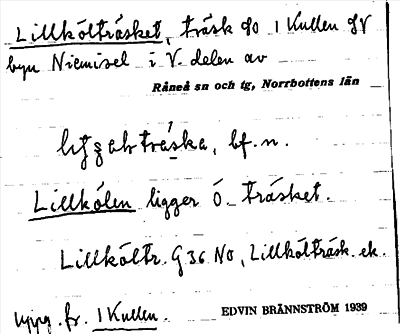 Lillkölträsket, träsk 9/0 1 Kullen SV
byn Niemisel i V. delen av
Råneå sn och tg, Norrbottens län
träska, bf. n.
Lillkölen ligger Ö. träsket.
Lillköltr. G 36 NO, Lillkölträsk. ek.
uppg. fr. 1 Kullen.
EDVIN BRÄNNSTRÖM 1939